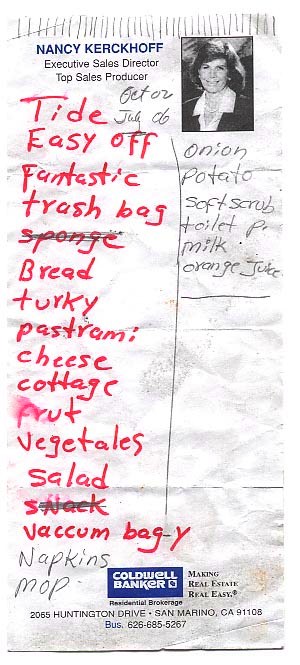 NANCY KERCKHOFF
Executive Sales Director
Top Sales Producer
Oct 02
July 06
Tide
Easy off
Fantastic
trash bag
sponge
Bread
turky
pastrami
cheese
cottage
frut
vegetales
salad
snack
vaccum bag-y
Napkins
mop
onion
potato
soft scrub
toilet p.
milk
orange Juice
COLDWELL
BANKER
Residential Brokerage
MAKING
REAL ESTATE
REAL EASY.®
2065 HUNTINGTON DRIVE • SAN MARINO, CA 91108
Bus. 626-685-5267